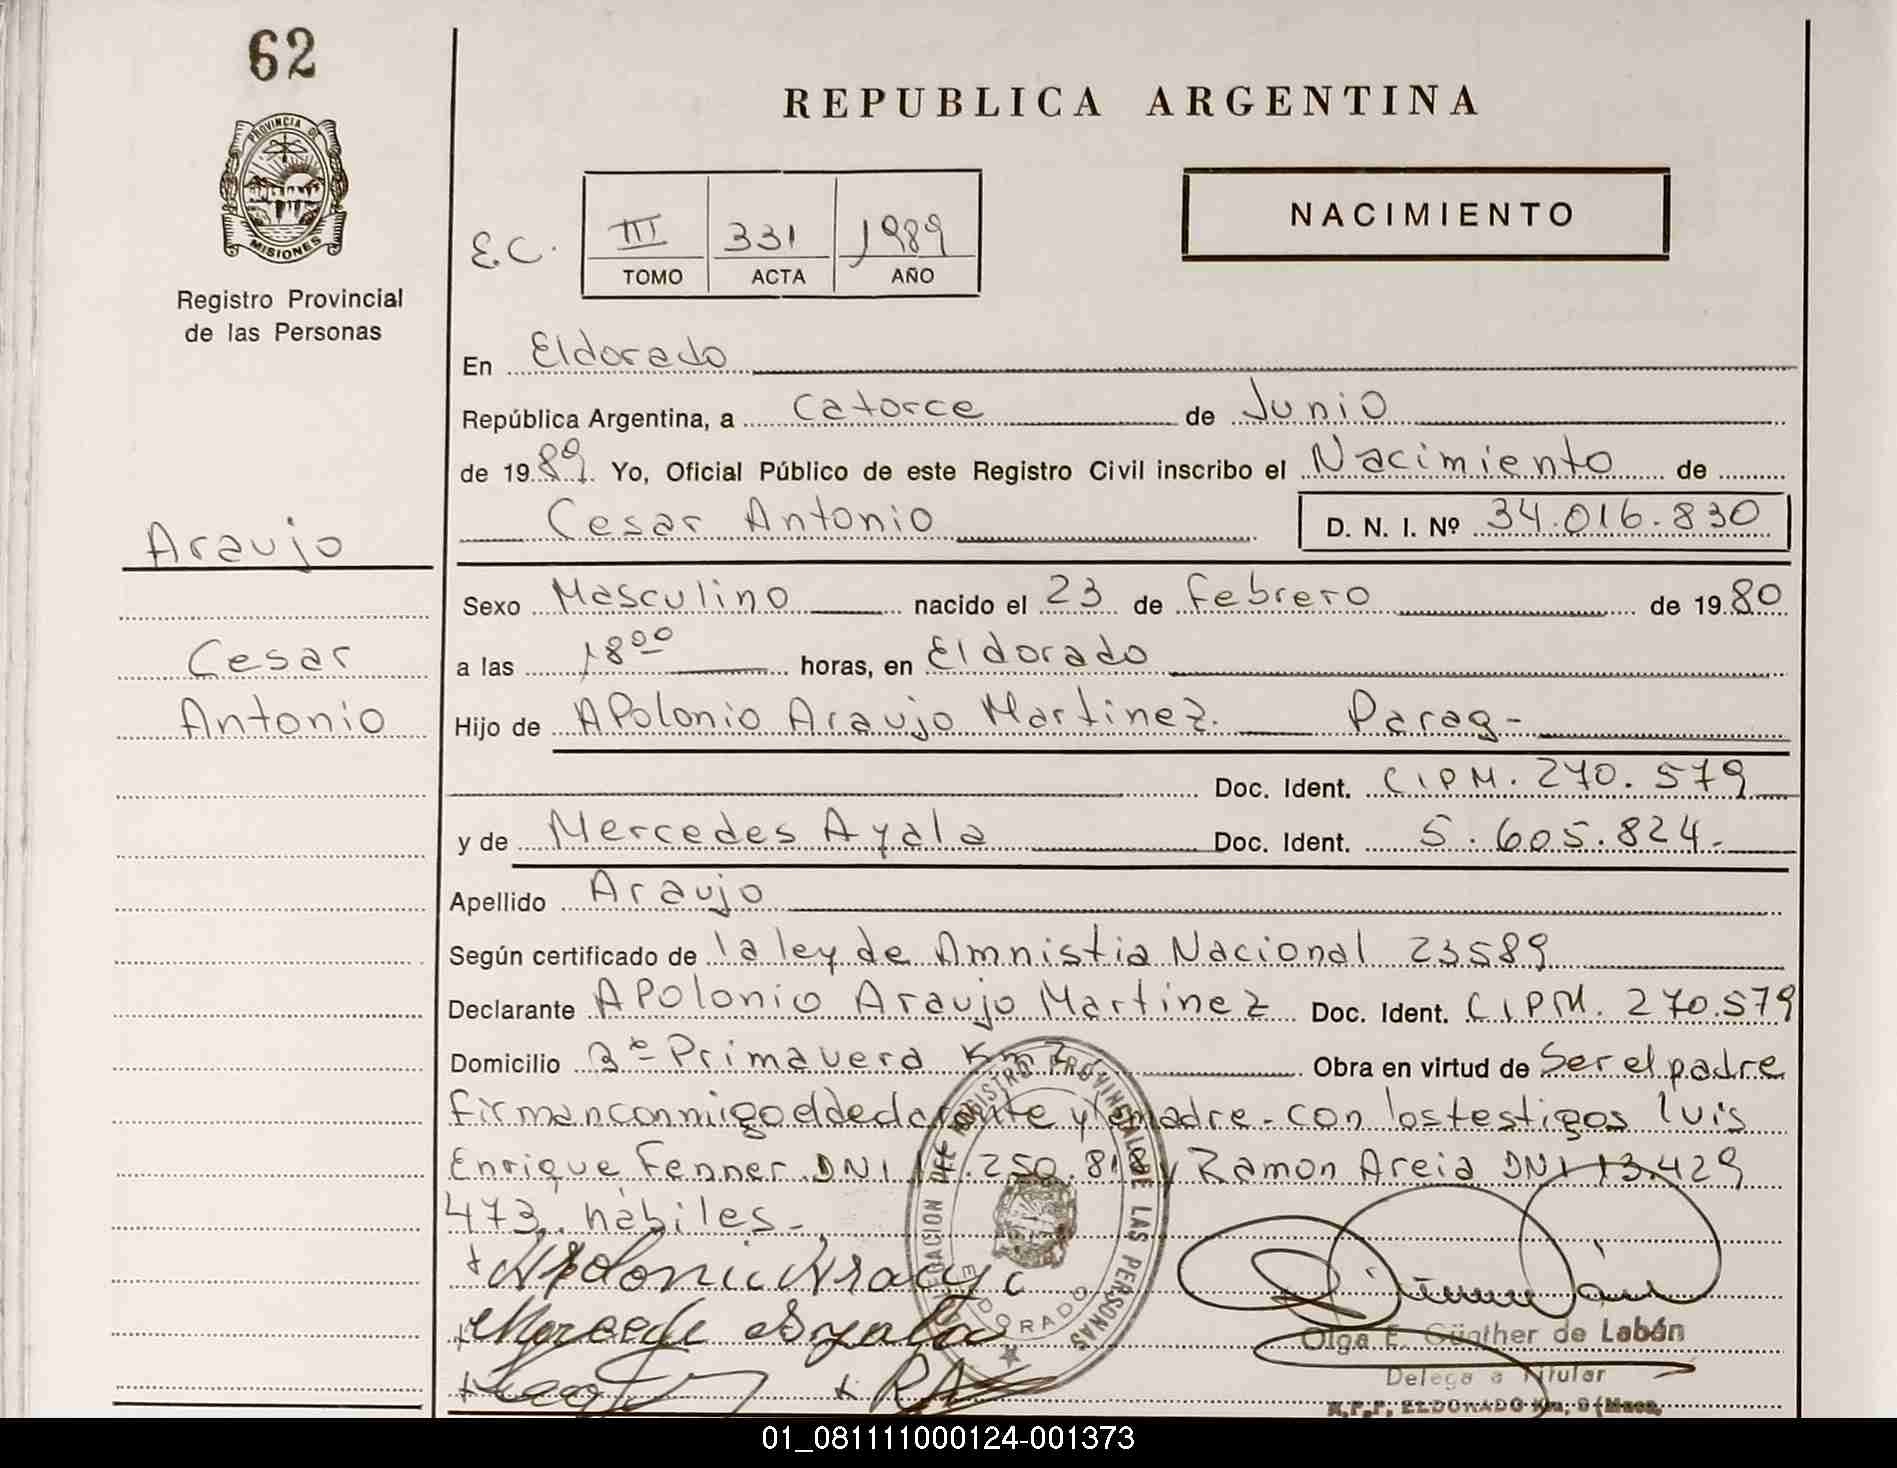 62
PROVINCIA DE
MISIONES
Registro Provincial
de las Personas
REPUBLICA ARGENTINA
NACIMIENTO
E.C. III 331 1989
TOMO ACTA AÑO
En Eldorado
República Argentina, a Catorce de Junio
de 1989. Yo, Oficial Público de este Registro Civil inscribo el Nacimiento de
Cesar Antonio D. N. I. Nº 34.016.830
Araujo
Cesar
Antonio
Sexo Masculino nacido el 23 de Febrero de 1980
a las 18 00 horas, en Eldorado
Hijo de APolonio Araujo Martinez. Parag-
Doc. Ident. CIPM. 270.579
y de Mercedes Ayala Doc. Ident. 5.605.824.-
Apellido Araujo
Según certificado de la ley de Amnistia Nacional 23589
Declarante APolonio Araujo Martinez Doc. Ident. CIPM. 270.579
Domicilio Primavera Km 2 Obra en virtud de Ser el padre
Firman conmigo el declarante y la madre - con los testigos luis
Enrique Fenner DNI .250.818 y Ramon Areia DNI 13.429
473. habiles-
+ Apolonio Araujo
+ Mercede Ayala
+ + RA
DELEGACION DEL REGISTRO PROVINCIAL DE LAS PERSONAS
ELDORADO
Olga E. Günther de Labán
Delegada Titular
R.P.P. ELDORADO Km. 9 (Mnes.
01_081111000124-001373